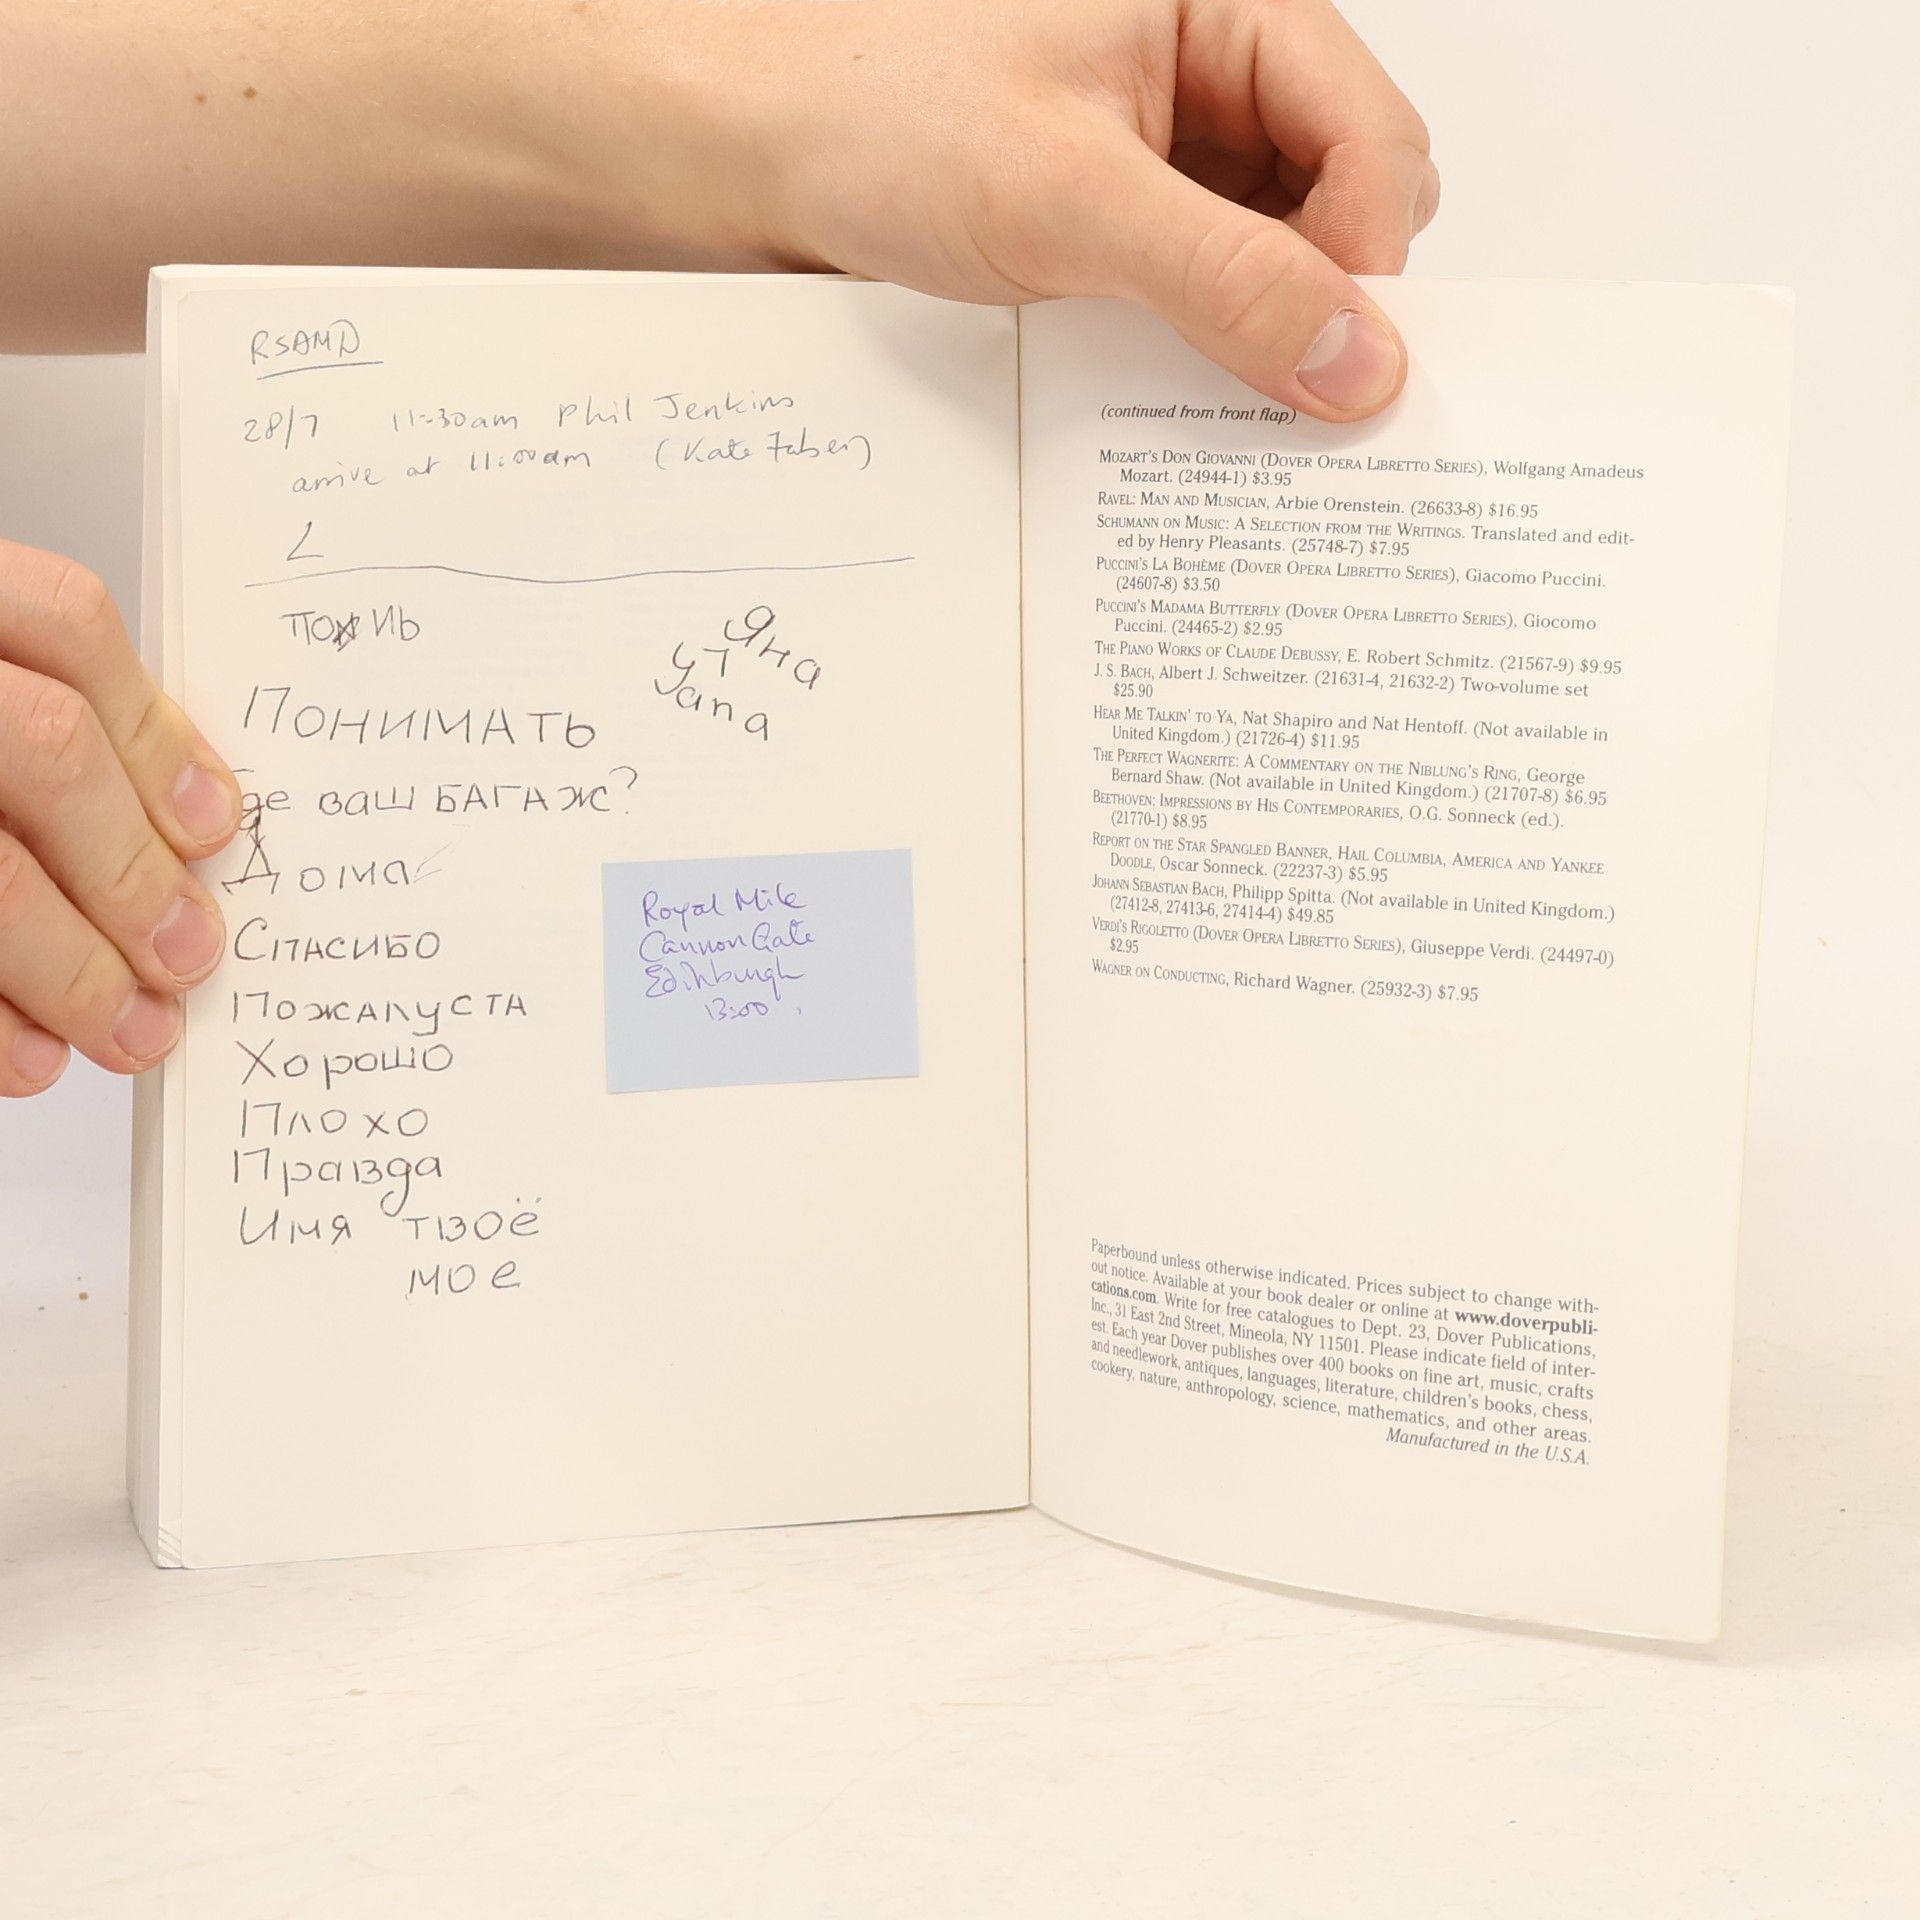 RSAMD
28/7 11:30am Phil Jenkins
arrive at 11:00am (Kate Faber)
Яна
Yana
ПОНИМАТЬ
Где ваш БАГАЖ?
Дома
СПАСИБО
ПОЖАЛУСТА
Хорошо
Плохо
Правда
Имя твоё
мое
Royal Mile
Cannon Gate
Edinburgh
13:00
(continued from front flap)
MOZART'S DON GIOVANNI (DOVER OPERA LIBRETTO SERIES), Wolfgang Amadeus
Mozart. (24944-1) $3.95
RAVEL: MAN AND MUSICIAN, Arbie Orenstein. (26633-8) $16.95
SCHUMANN ON MUSIC: A SELECTION FROM THE WRITINGS. Translated and edit-
ed by Henry Pleasants. (25748-7) $7.95
PUCCINI'S LA BOHÈME (DOVER OPERA LIBRETTO SERIES), Giacomo Puccini.
(24607-8) $3.50
PUCCINI'S MADAMA BUTTERFLY (DOVER OPERA LIBRETTO SERIES), Giocomo
Puccini. (24465-2) $2.95
THE PIANO WORKS OF CLAUDE DEBUSSY, E. Robert Schmitz. (21567-9) $9.95
J. S. BACH, Albert J. Schweitzer. (21631-4, 21632-2) Two-volume set
$25.90
HEAR ME TALKIN' TO YA, Nat Shapiro and Nat Hentoff. (Not available in
United Kingdom.) (21726-4) $11.95
THE PERFECT WAGNERITE: A COMMENTARY ON THE NIBLUNG'S RING, George
Bernard Shaw. (Not available in United Kingdom.) (21707-8) $6.95
BEETHOVEN: IMPRESSIONS BY HIS CONTEMPORARIES, O.G. Sonneck (ed.).
(21770-1) $8.95
REPORT ON THE STAR SPANGLED BANNER, HAIL COLUMBIA, AMERICA AND YANKEE
DOODLE, Oscar Sonneck. (22237-3) $5.95
JOHANN SEBASTIAN BACH, Philipp Spitta. (Not available in United Kingdom.)
(27412-8, 27413-6, 27414-4) $49.85
VERDI'S RIGOLETTO (DOVER OPERA LIBRETTO SERIES), Giuseppe Verdi. (24497-0)
$2.95
WAGNER ON CONDUCTING, Richard Wagner. (25932-3) $7.95
Paperbound unless otherwise indicated. Prices subject to change with-
out notice. Available at your book dealer or online at www.doverpubli-
cations.com. Write for free catalogues to Dept. 23, Dover Publications,
Inc., 31 East 2nd Street, Mineola, NY 11501. Please indicate field of inter-
est. Each year Dover publishes over 400 books on fine art, music, crafts
and needlework, antiques, languages, literature, children's books, chess,
cookery, nature, anthropology, science, mathematics, and other areas.
Manufactured in the U.S.A.